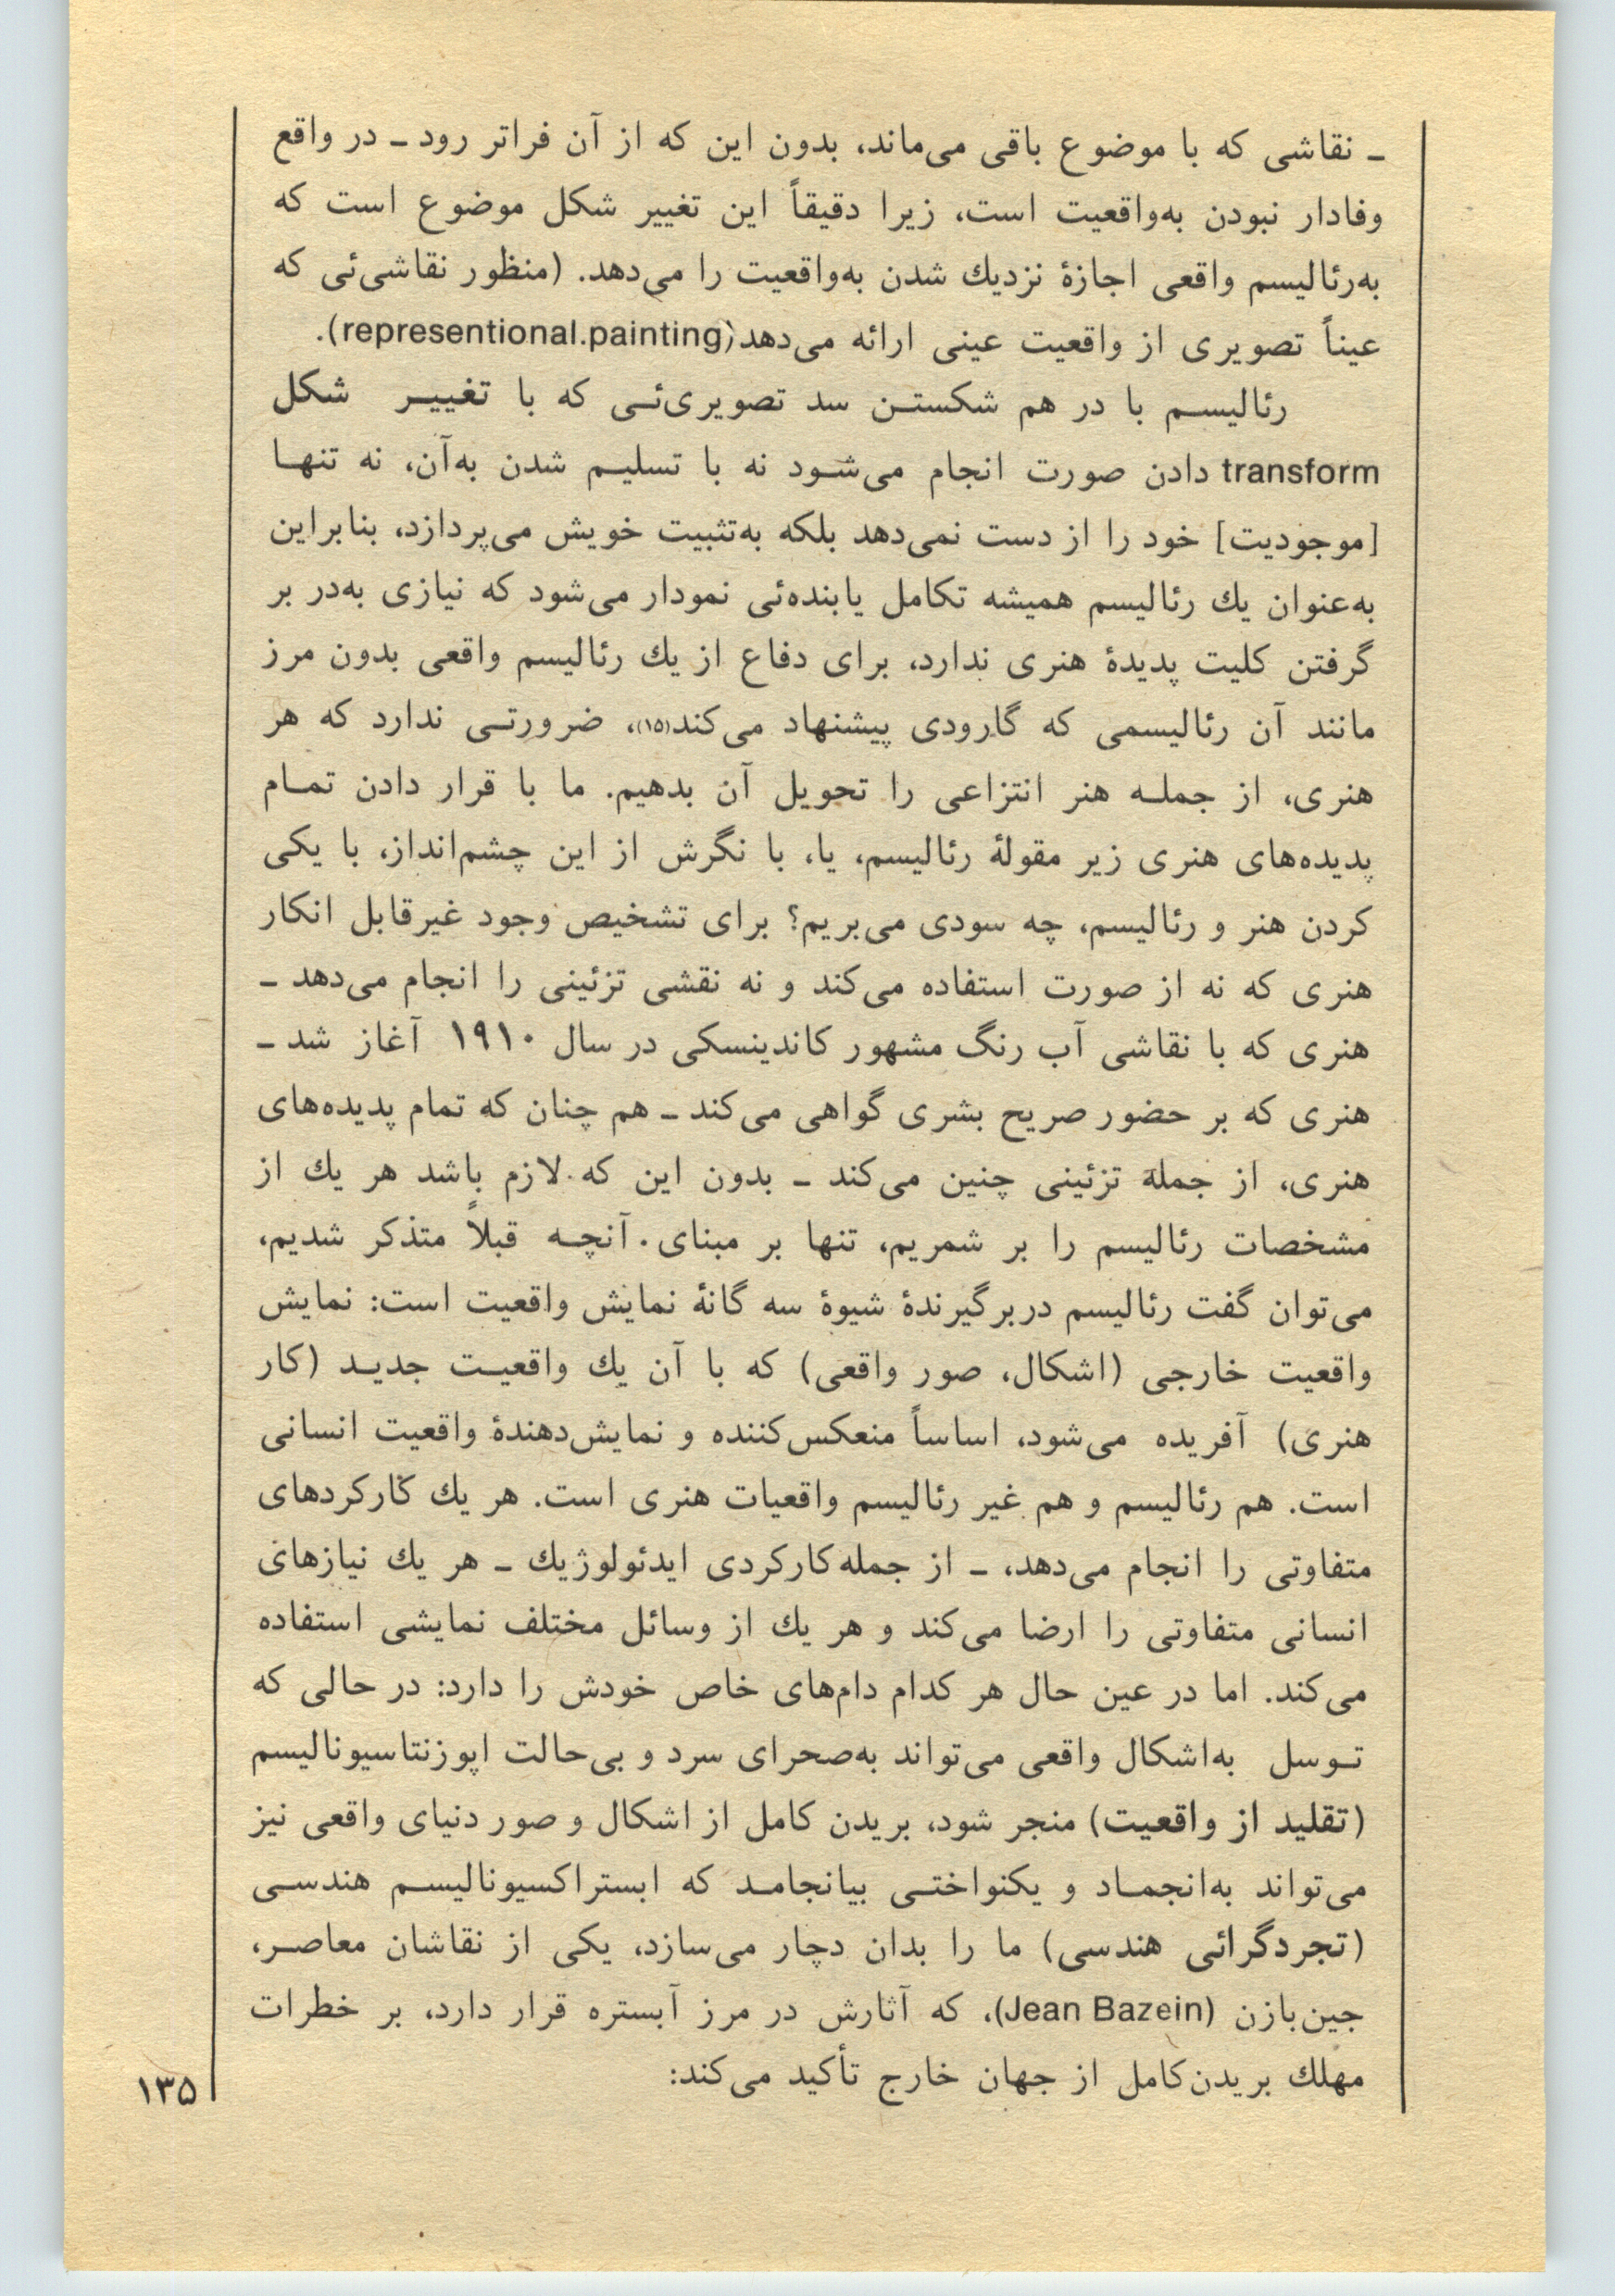 ـ نقاشی که با موضوع باقی می‌ماند، بدون این که از آن فراتر رود ـ در واقع
وفادار نبودن به‌واقعیت است، زیرا دقیقاً این تغییر شکل موضوع است که
به‌رئالیسم واقعی اجازهٔ نزدیك شدن به‌واقعیت را می‌دهد. (منظور نقاشی‌ئی که
عیناً تصویری از واقعیت عینی ارائه می‌دهد (representional.painting).
رئالیسم با در هم شکستن سد تصویری‌ئی که با تغییر شکل
transform دادن صورت انجام می‌شود نه با تسلیم شدن به‌آن، نه تنها
[موجودیت] خود را از دست نمی‌دهد بلکه به‌تثبیت خویش می‌پردازد، بنابراین
به‌عنوان یك رئالیسم همیشه تکامل یابنده‌ئی نمودار می‌شود که نیازی به‌در بر
گرفتن کلیت پدیدهٔ هنری ندارد، برای دفاع از یك رئالیسم واقعی بدون مرز
مانند آن رئالیسمی که گارودی پیشنهاد می‌کند(۱۵)، ضرورتی ندارد که هر
هنری، از جمله هنر انتزاعی را تحویل آن بدهیم. ما با قرار دادن تمام
پدیده‌های هنری زیر مقولهٔ رئالیسم، یا، با نگرش از این چشم‌انداز، با یکی
کردن هنر و رئالیسم، چه سودی می‌بریم؟ برای تشخیص وجود غیرقابل انکار
هنری که نه از صورت استفاده می‌کند و نه نقشی تزئینی را انجام می‌دهد ـ
هنری که با نقاشی آب رنگ مشهور کاندینسکی در سال ۱۹۱۰ آغاز شد ـ
هنری که بر حضور صریح بشری گواهی می‌کند ـ هم چنان که تمام پدیده‌های
هنری، از جمله تزئینی چنین می‌کند ـ بدون این که لازم باشد هر یك از
مشخصات رئالیسم را بر شمریم، تنها بر مبنای آنچه قبلاً متذکر شدیم،
می‌توان گفت رئالیسم دربرگیرندهٔ شیوهٔ سه گانهٔ نمایش واقعیت است: نمایش
واقعیت خارجی (اشکال، صور واقعی) که با آن یك واقعیت جدید (کار
هنری) آفریده می‌شود، اساساً منعکس‌کننده و نمایش‌دهندهٔ واقعیت انسانی
است. هم رئالیسم و هم غیر رئالیسم واقعیات هنری است. هر یك کارکردهای
متفاوتی را انجام می‌دهد، ـ از جمله کارکردی ایدئولوژیك ـ هر یك نیازهای
انسانی متفاوتی را ارضا می‌کند و هر یك از وسائل مختلف نمایشی استفاده
می‌کند. اما در عین حال هر کدام دام‌های خاص خودش را دارد: در حالی که
توسل به‌اشکال واقعی می‌تواند به‌صحرای سرد و بی‌حالت اپوزنتاسیونالیسم
(تقلید از واقعیت) منجر شود، بریدن کامل از اشکال و صور دنیای واقعی نیز
می‌تواند به‌انجماد و یکنواختی بیانجامد که ابستراکسیونالیسم هندسی
(تجردگرائی هندسی) ما را بدان دچار می‌سازد، یکی از نقاشان معاصر،
جین‌بازن (Jean Bazein)، که آثارش در مرز آبستره قرار دارد، بر خطرات
مهلك بریدن‌کامل از جهان خارج تأکید می‌کند:
۱۳۵